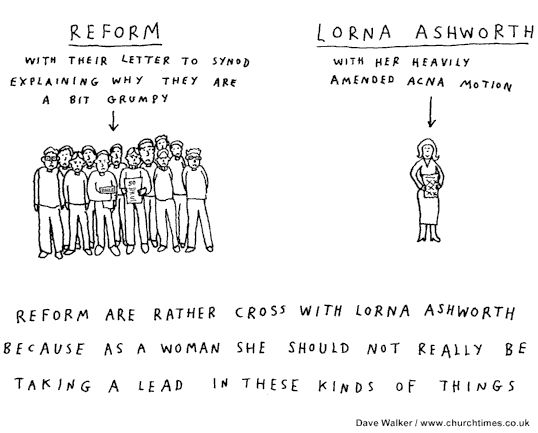 REFORM
WITH THEIR LETTER TO SYNOD
EXPLAINING WHY THEY ARE
A BIT GRUMPY
LORNA ASHWORTH
WITH HER HEAVILY
AMENDED ACNA MOTION
REFORM ARE RATHER CROSS WITH LORNA ASHWORTH
BECAUSE AS A WOMAN SHE SHOULD NOT REALLY BE
TAKING A LEAD IN THESE KINDS OF THINGS
Dave Walker / www.churchtimes.co.uk